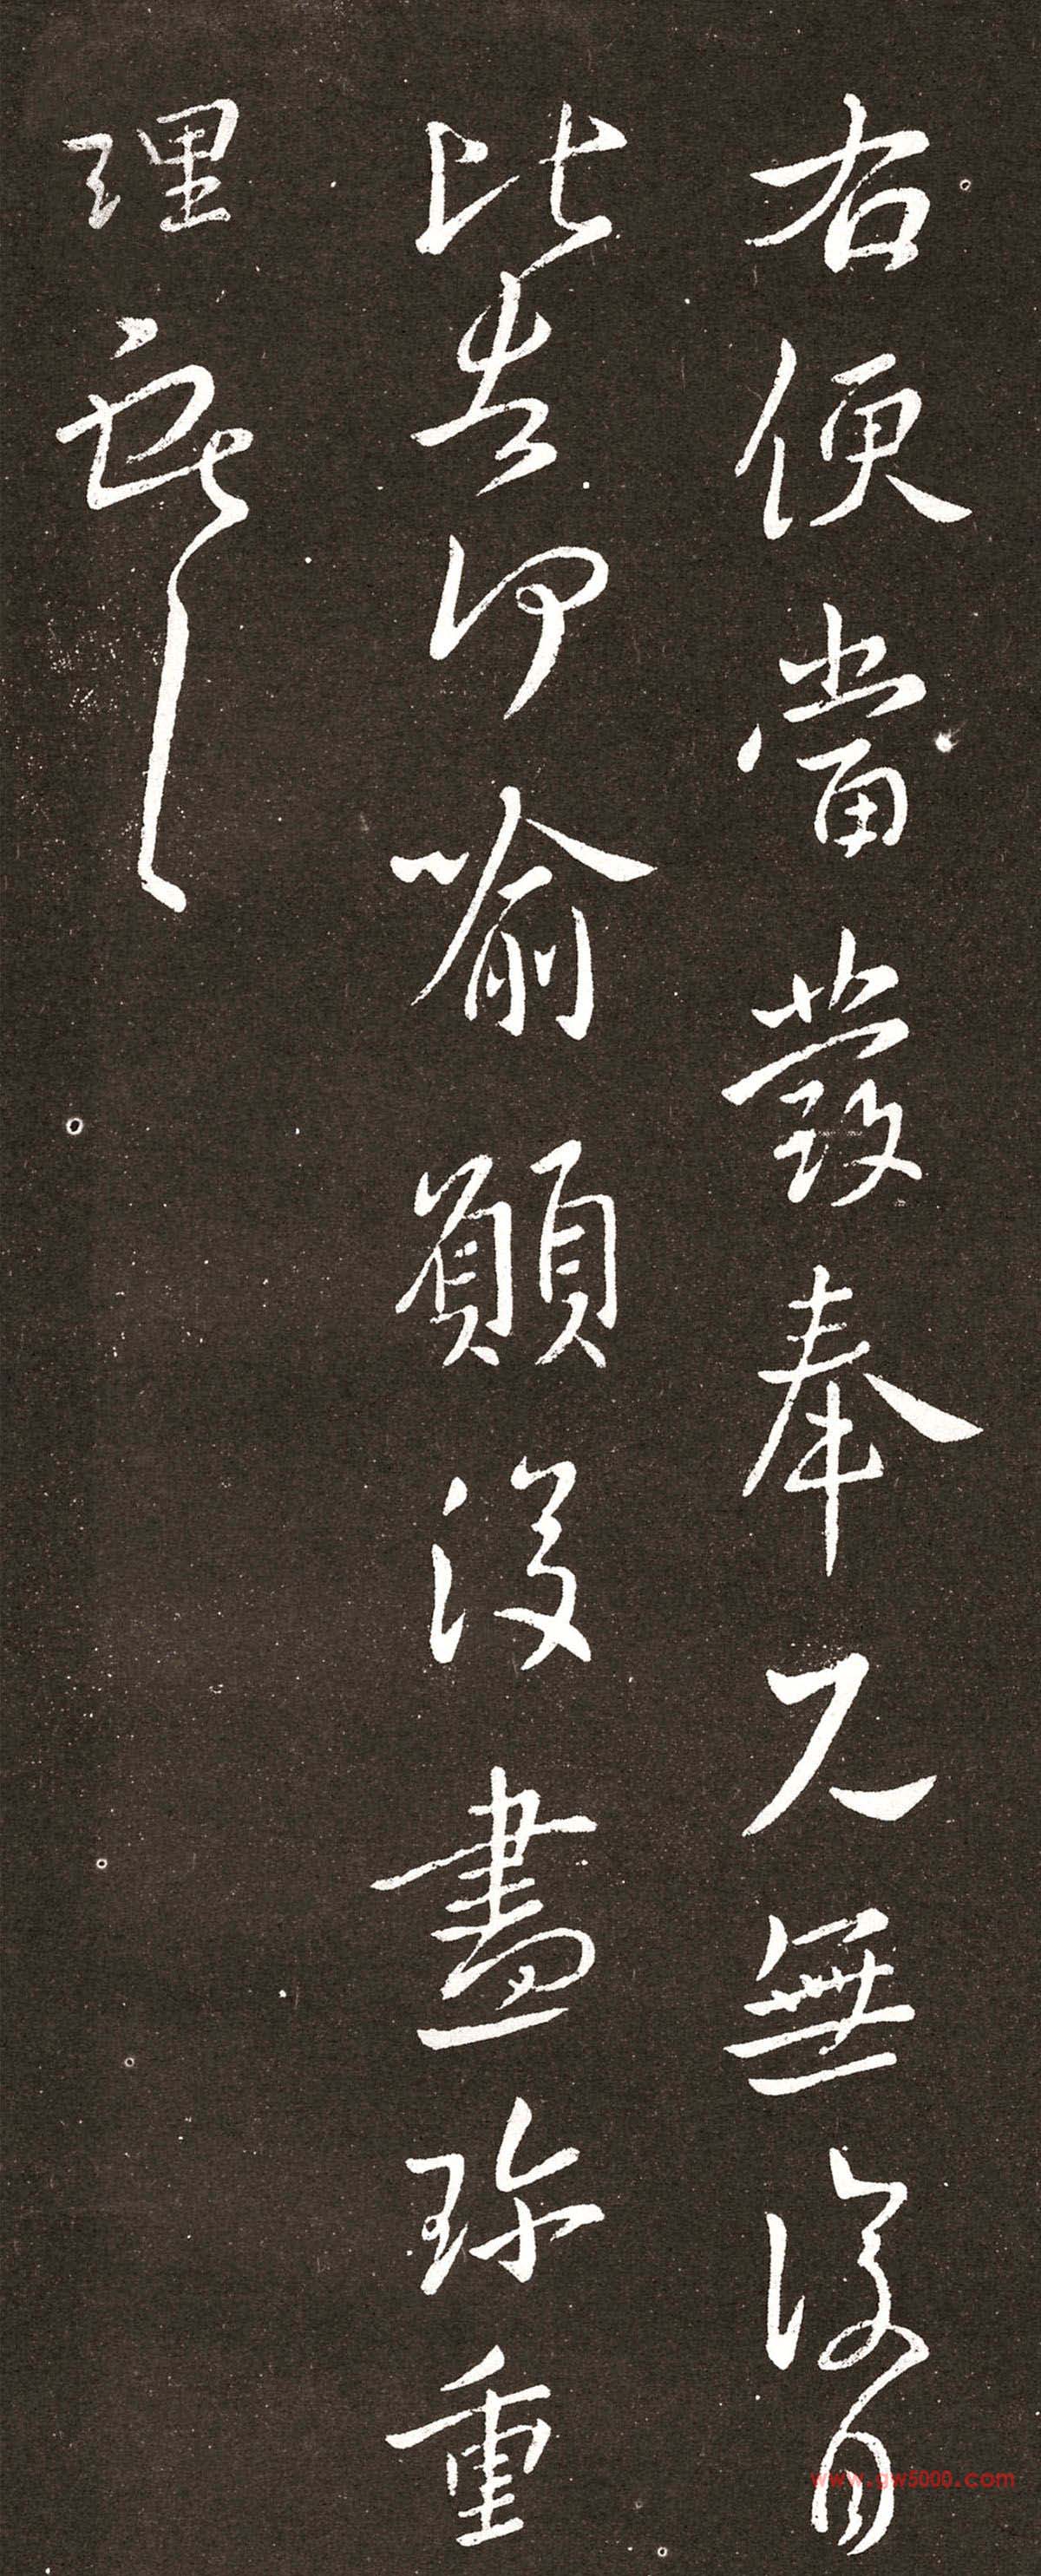 右便當發奉見無復日
比告何喻願復盡珍重
理
www.gw5000.com